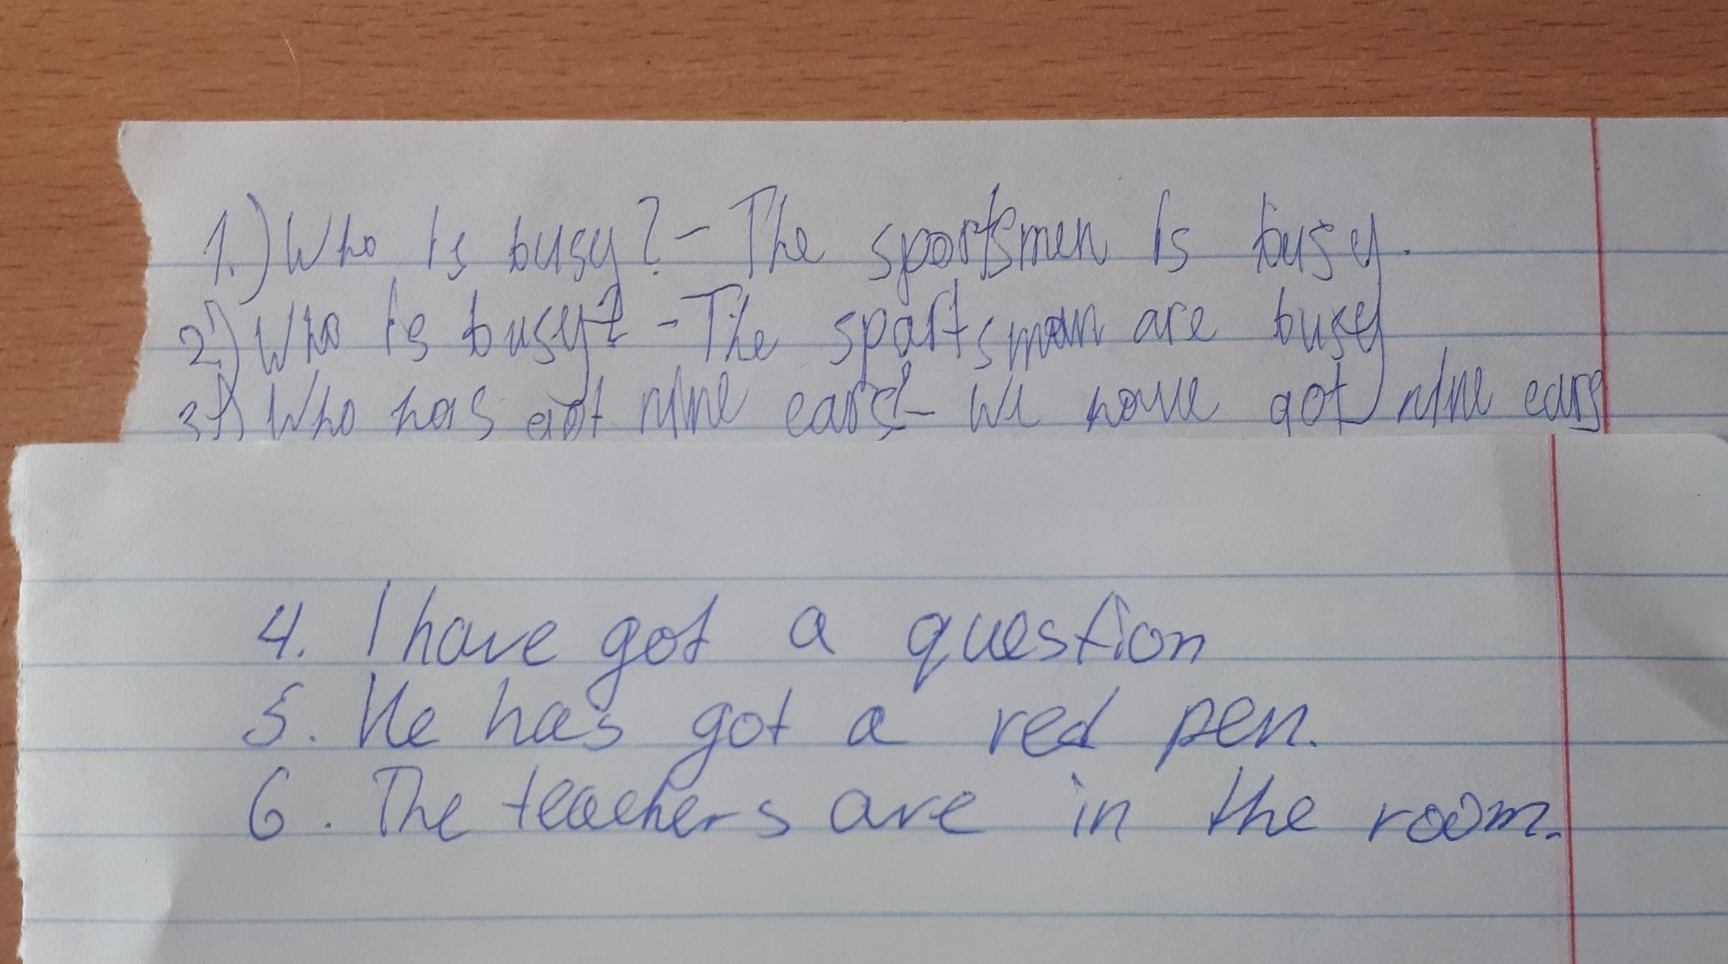 1.) Who is busy? - The sportsmen is busy.
2.) Who is busy? - The sportsman are busy
3.) Who has got nine ears? - We have got nine ears
4. I have got a question
5. He has got a red pen.
6. The teachers are in the room.